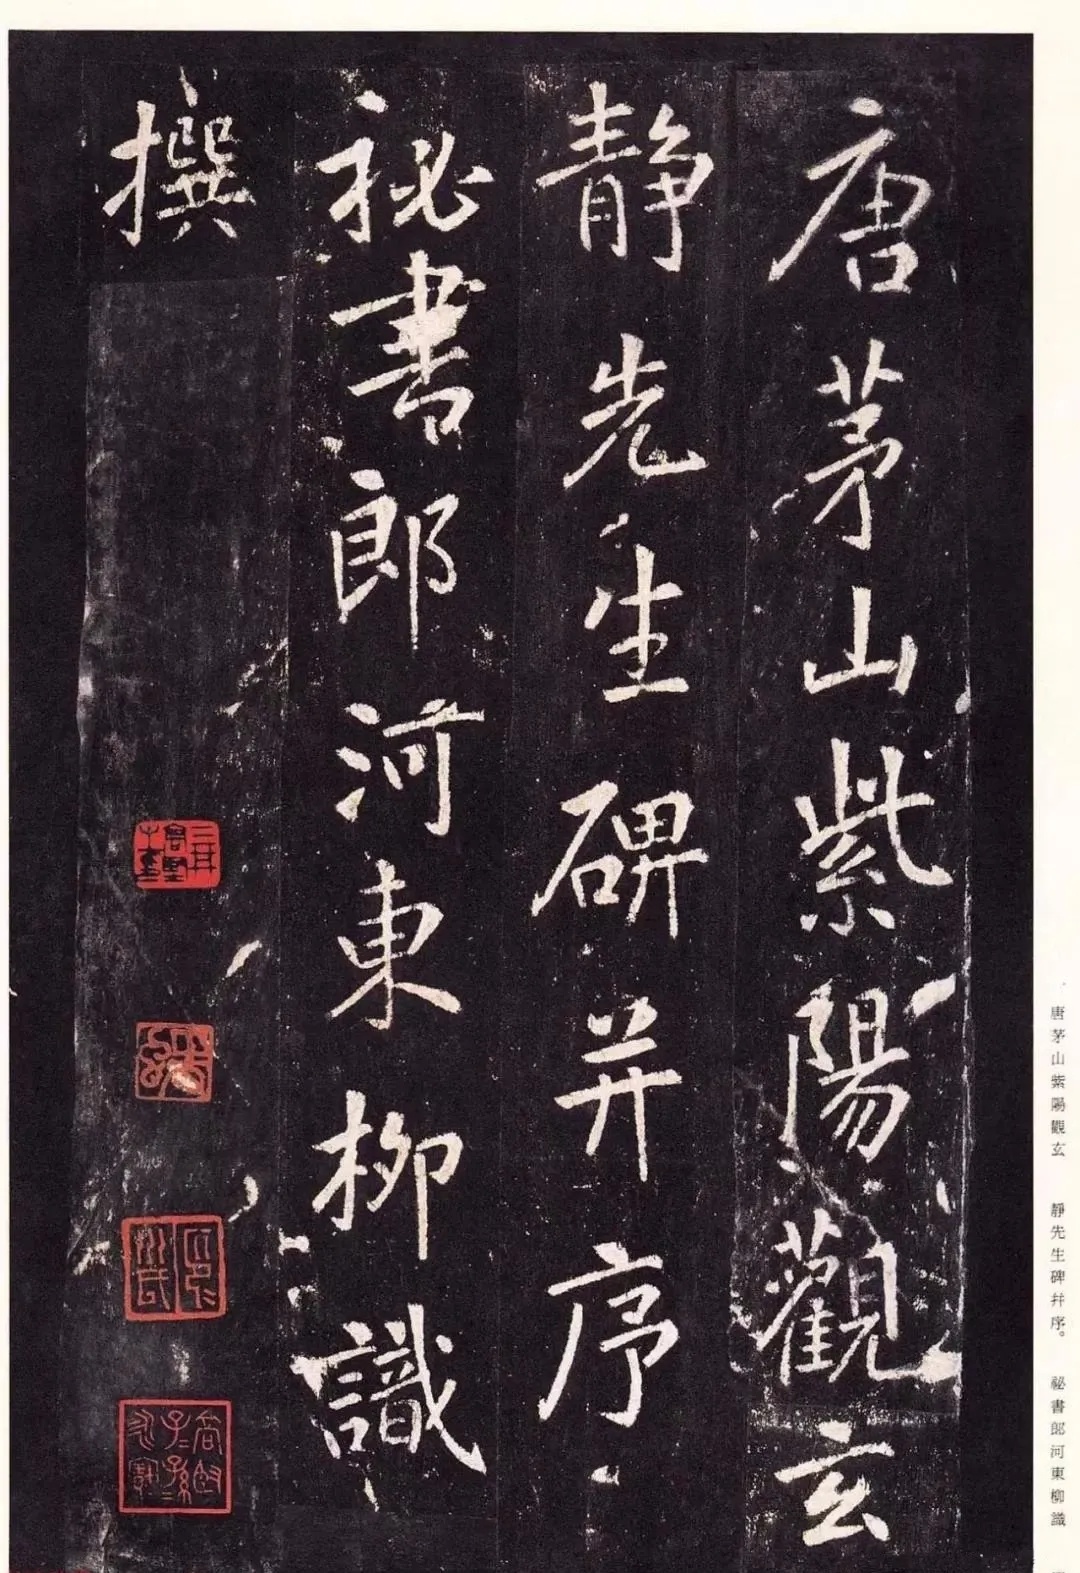 唐茅山紫陽觀玄
靜先生碑并序
祕書郎河東柳識
撰
唐茅山紫陽觀玄　靜先生碑幷序。　祕書郎河東柳識